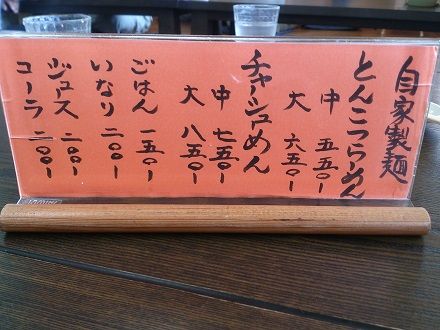 自家製麺
とんこつらーめん
中 五五〇ー
大 六五〇ー
チャーシュめん
中 七五〇ー
大 八五〇ー
ごはん 一五〇ー
いなり 二〇〇ー
ジュース 二〇〇ー
コーラ 二〇〇ー